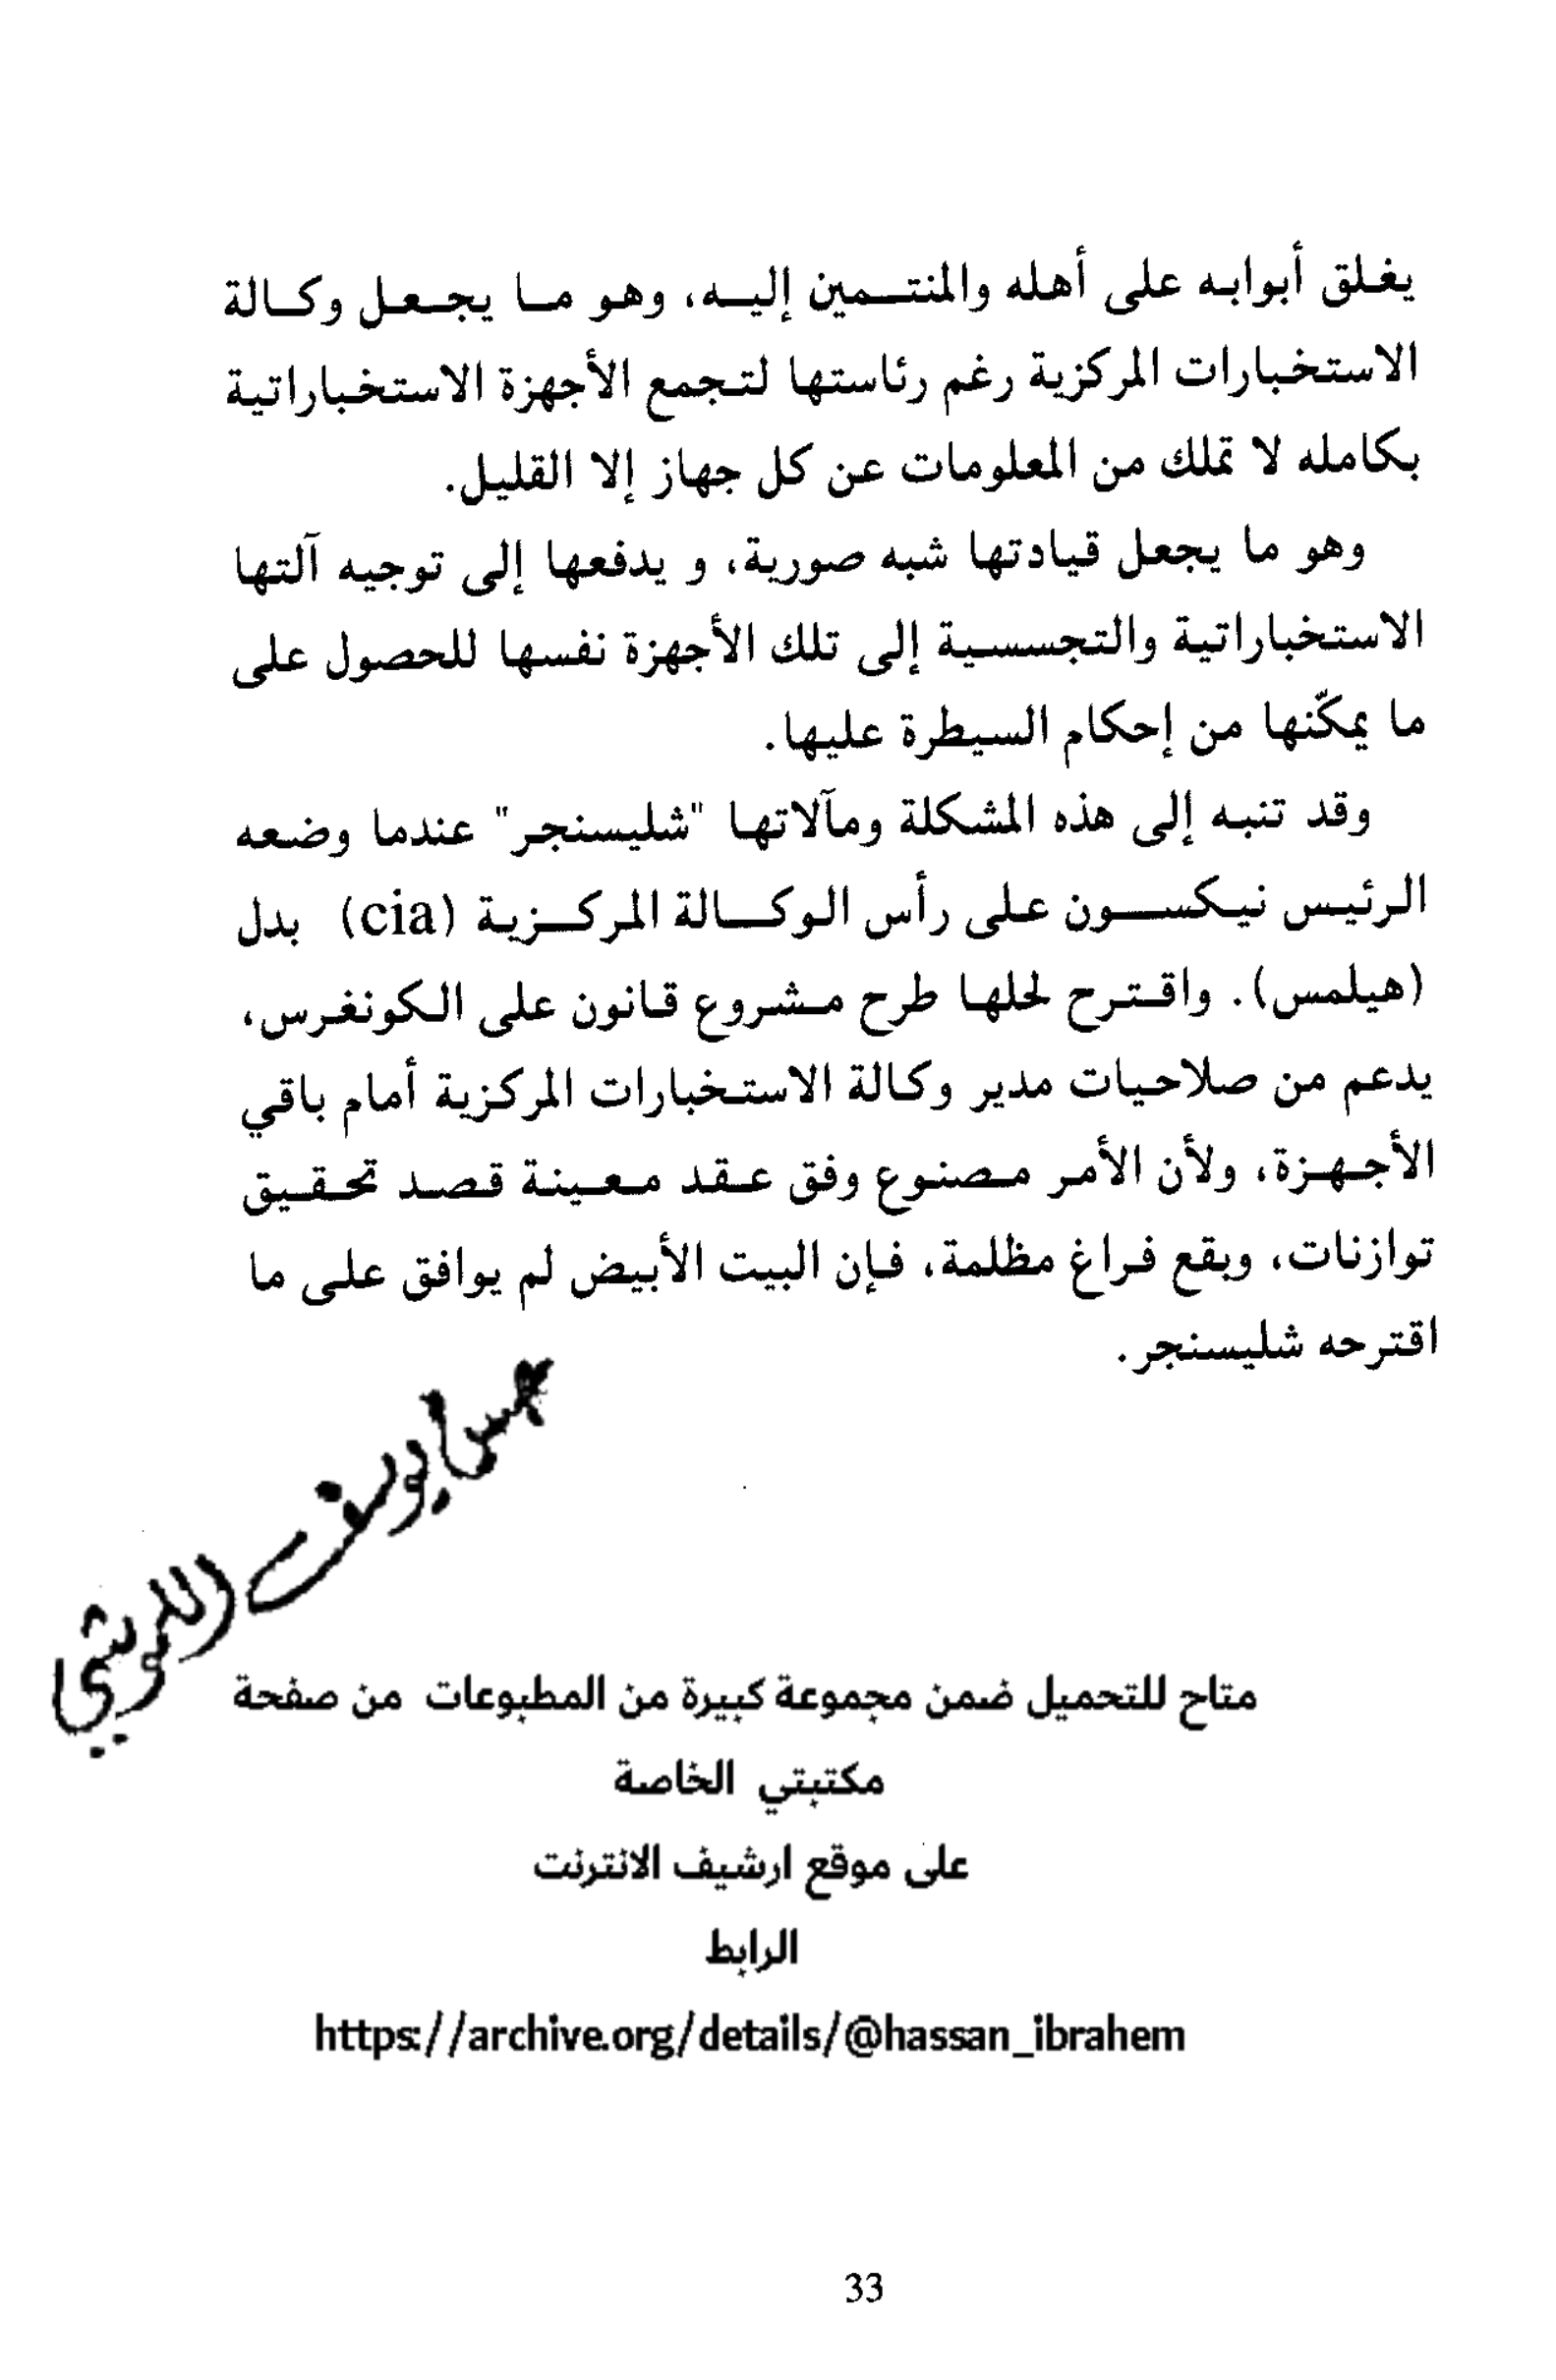 يغلق أبوابه على أهله والمنتمين إليه، وهو ما يجعل وكالة
الاستخبارات المركزية رغم رئاستها لتجمع الأجهزة الاستخباراتية
بكامله لا تملك من المعلومات عن كل جهاز إلا القليل.
وهو ما يجعل قيادتها شبه صورية، و يدفعها إلى توجيه آلتها
الاستخباراتية والتجسسية إلى تلك الأجهزة نفسها للحصول على
ما يمكّنها من إحكام السيطرة عليها.
وقد تنبه إلى هذه المشكلة ومآلاتها "شليسنجر" عندما وضعه
الرئيس نيكسون على رأس الوكالة المركزية (cia) بدل
(هيلمس). واقترح لحلها طرح مشروع قانون على الكونغرس،
يدعم من صلاحيات مدير وكالة الاستخبارات المركزية أمام باقي
الأجهزة، ولأن الأمر مصنوع وفق عقد معينة قصد تحقيق
توازنات، وبقع فراغ مظلمة، فإن البيت الأبيض لم يوافق على ما
اقترحه شليسنجر.
متاح للتحميل ضمن مجموعة كبيرة من المطبوعات من صفحة
مكتبتي الخاصة
على موقع ارشيف الانترنت
الرابط
https://archive.org/details/@hassan_ibrahem
33